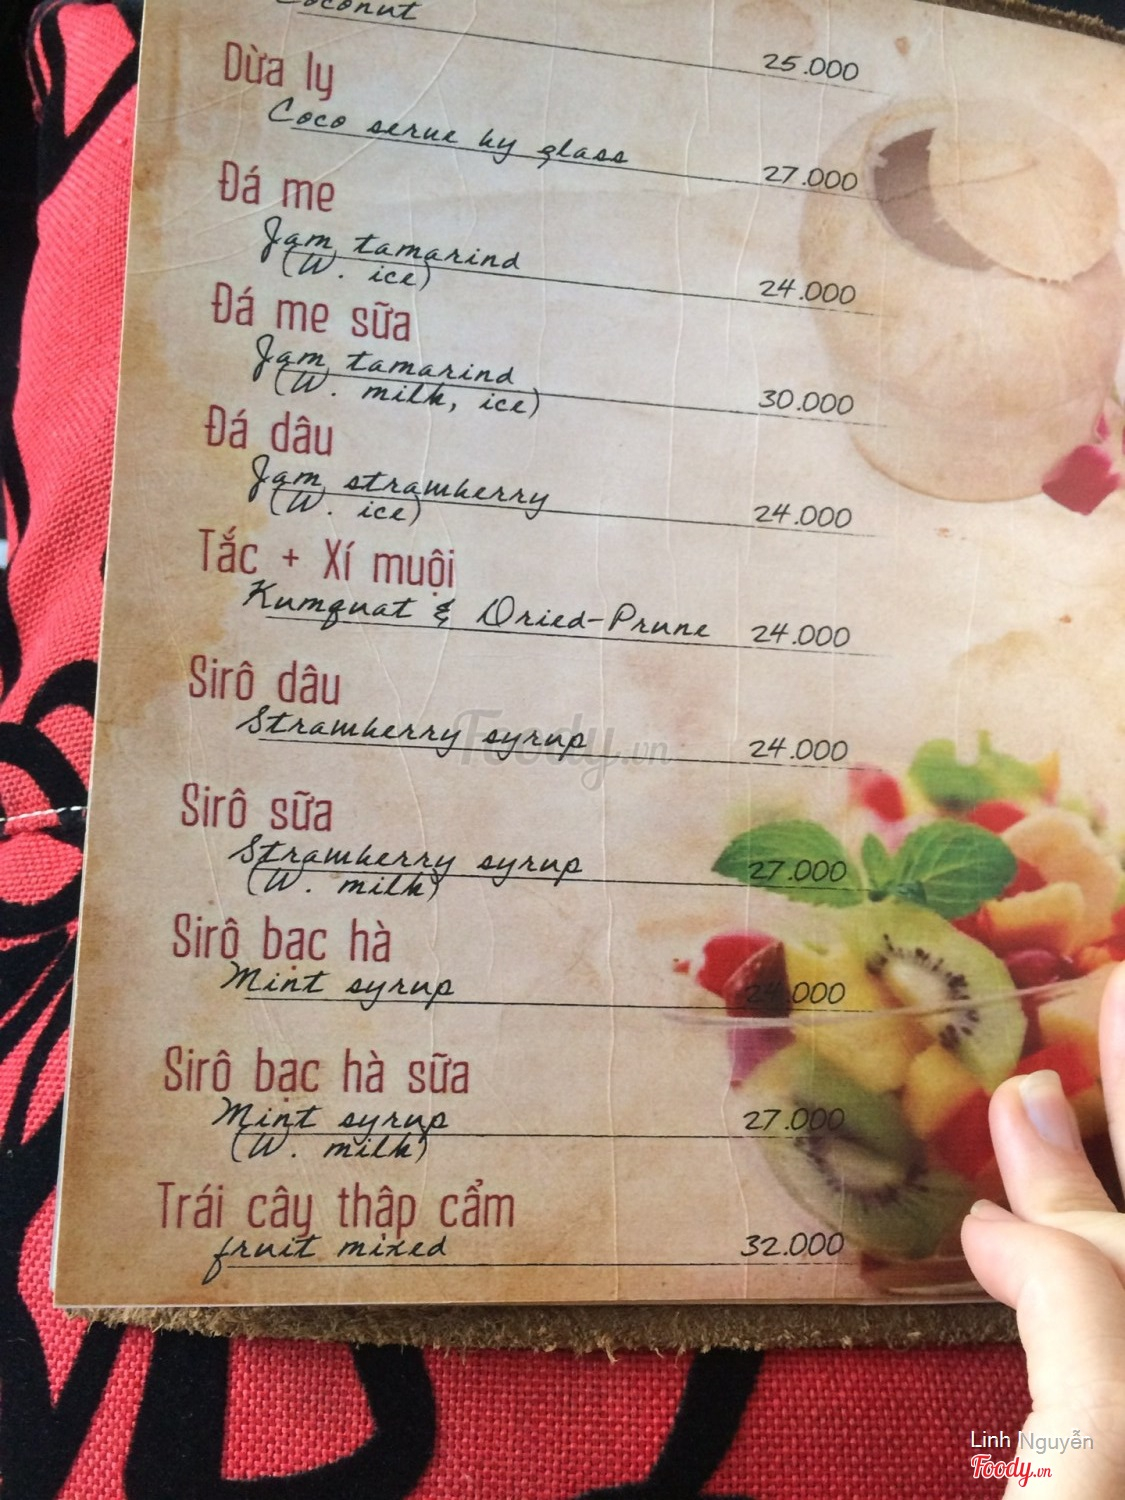 Coconut
25.000
Dừa ly
Coco serve by glass
27.000
Đá me
Jam tamarind
(W. ice)
24.000
Đá me sữa
Jam tamarind
(W. milk, ice)
30.000
Đá dâu
Jam strawberry
(W. ice)
24.000
Tắc + Xí muội
Kumquat & Dried-Prune 24.000
Sirô dâu
Strawberry syrup
24.000
Foody.vn
Sirô sữa
Strawberry syrup
(W. milk)
27.000
Sirô bạc hà
Mint syrup
24.000
Sirô bạc hà sữa
Mint syrup
(W. milk)
27.000
Trái cây thập cẩm
fruit mixed
32.000
Linh Nguyễn
Foody.vn